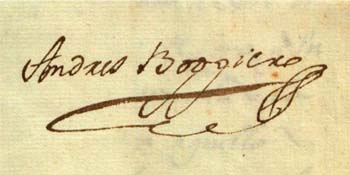 Andres Boggiero